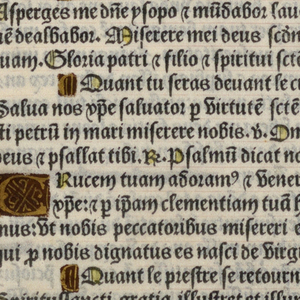 Asperges me dñe ysopo ⁊ mũdabor lau
uẽ dealbabor. Miserere mei deus scðm
uam. Gloria patri ⁊ filio ⁊ spiritui scte
Quant tu seras deuant le cr
Salua nos xp̃e saluator p̱ virtutẽ scte
ti petrũ in mari miserere nobis. v. D
eus ⁊ psallat tibi. R. Psalmũ dicat no
Crucem tuam adoramꝰ ⁊ Vener
xp̃e: ⁊ p̱ ip̃am clementiam tuã h
mus: Vt nobis peccatoribus misereri e
qui p̱ nobis dignatus es nasci de virgi
Quant le prestre se retourn
Spiritussancti gratia illustret et illumi